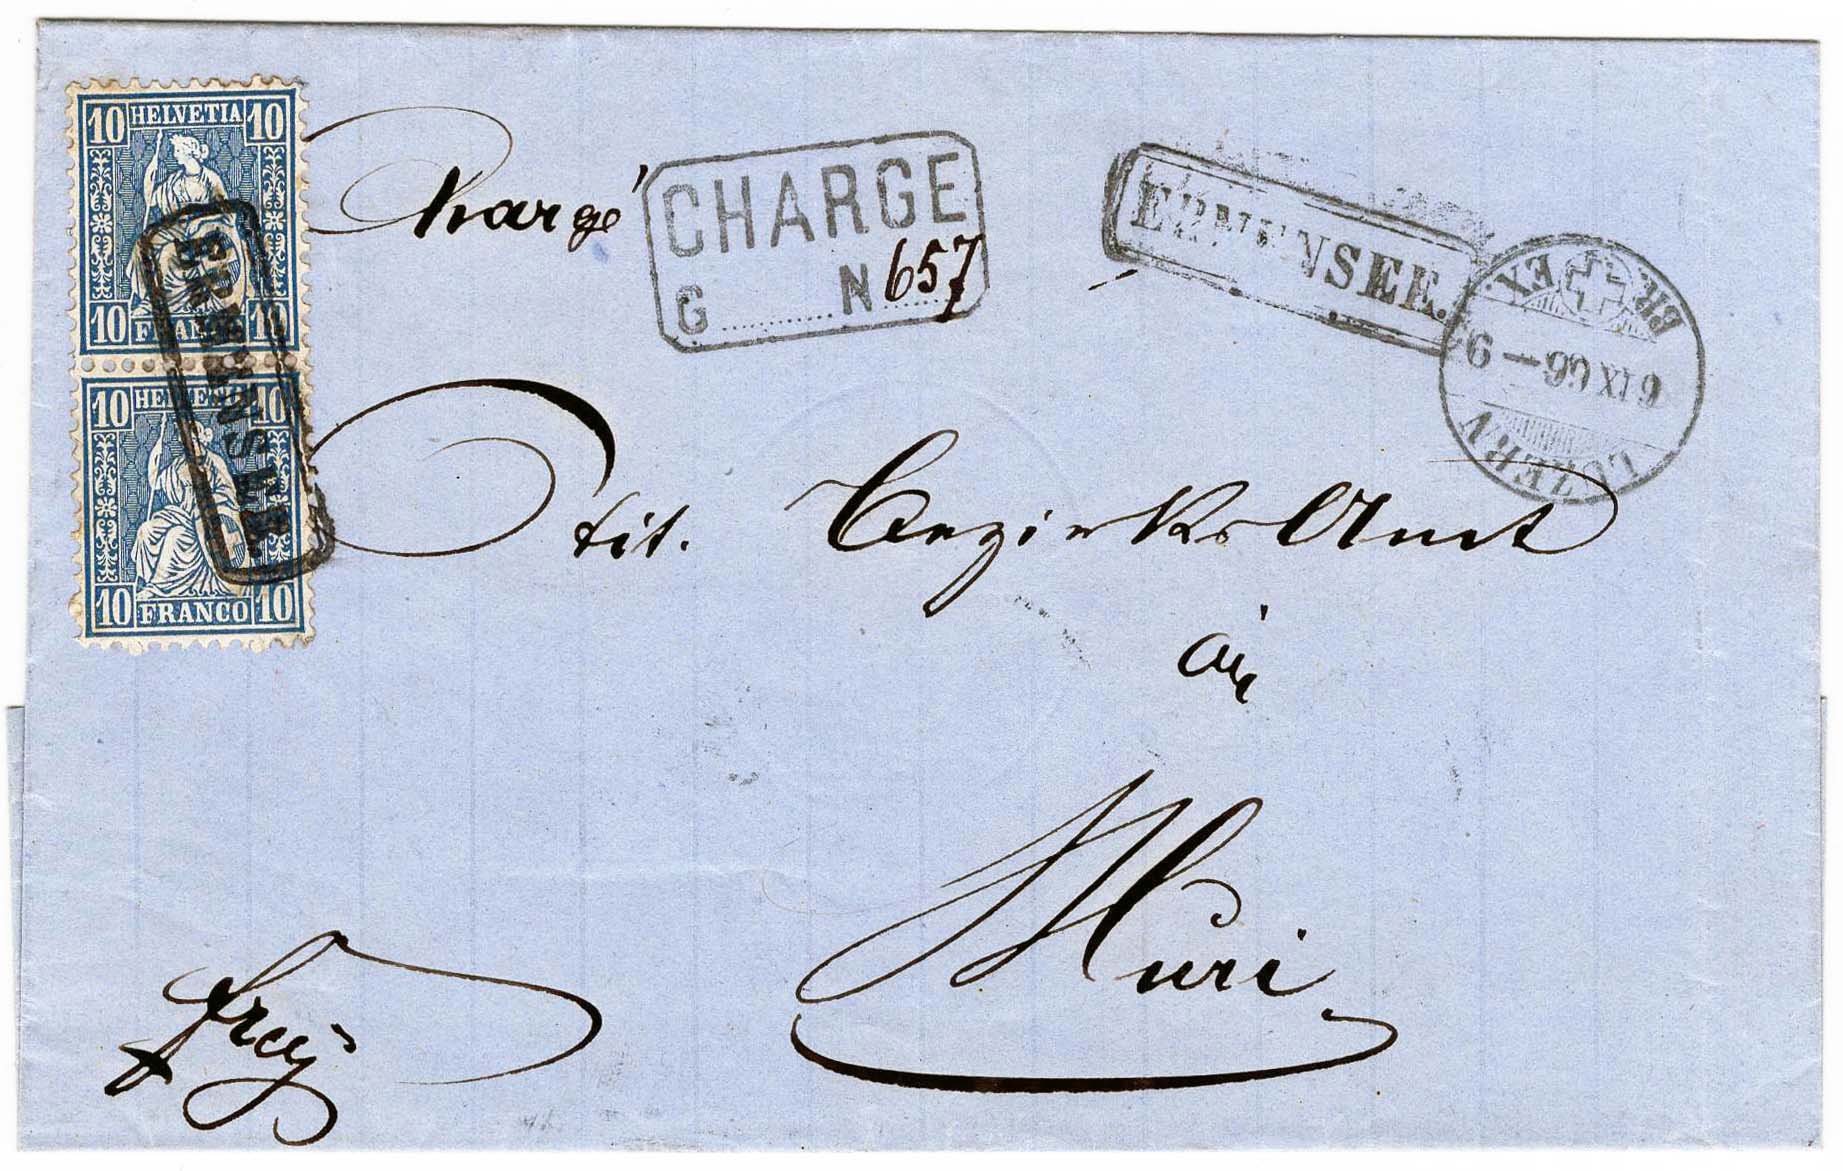 10 HELVETIA 10
10 FRANCO 10
10 HELVETIA 10
10 FRANCO 10
ERMENSEE.
Chargé
CHARGE
G N 657
ERMENSEE.
LUZERN BR. EX.
6 IX 66 — 9
Tit. Bezirks Amt
in
Muri
frey